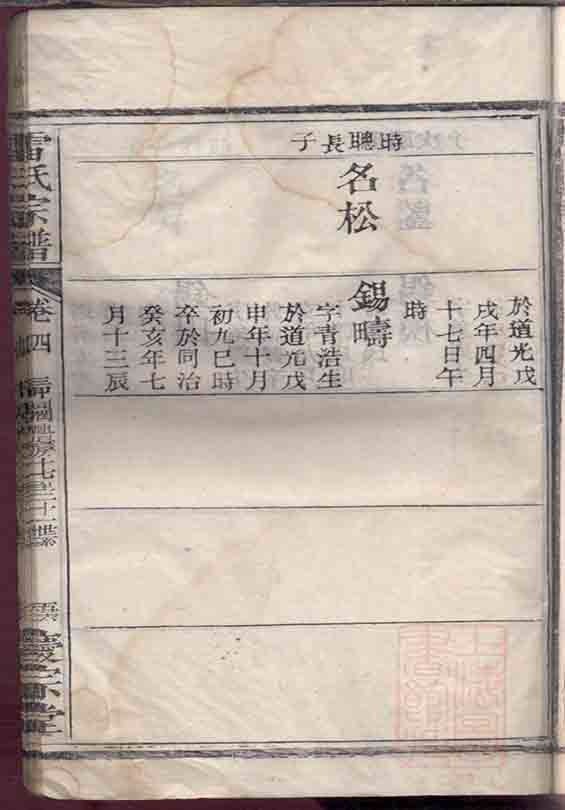 時聰長子
名松
於道光戊
戌年四月
十七日午
時
錫疇
字青浩生
於道光戊
申年十月
初九巳時
卒於同治
癸亥年七
月十三辰
雷氏宗譜
卷四
慶宗堂